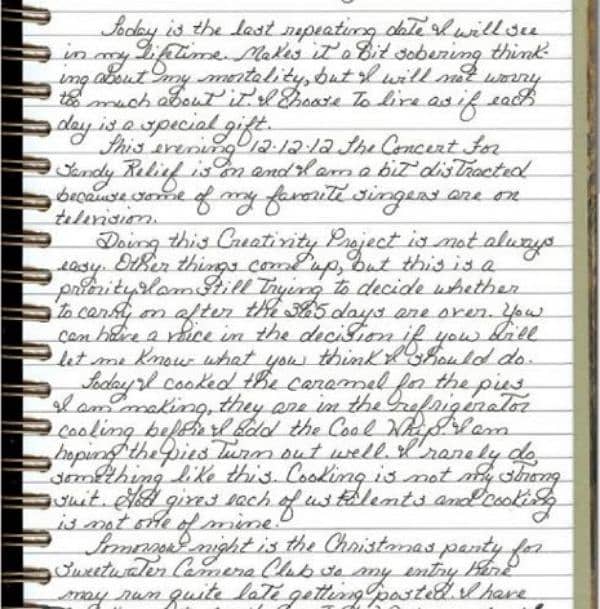 Today is the last repeating date I will see
in my lifetime. Makes it a bit sobering think-
ing about my mortality, but I will not worry
too much about it. I choose to live as if each
day is a special gift.
This evening 12-12-12 The Concert For
Sandy Relief is on and I am a bit distracted
because some of my favorite singers are on
television.
Doing this Creativity Project is not always
easy. Other things come up, but this is a
priority. I am still trying to decide whether
to carry on after the 365 days are over. You
can have a voice in the decision if you will
let me know what you think I should do.
Today I cooked the caramel for the pies
I am making, they are in the refrigerator
cooling before I add the Cool Whip. I am
hoping the pies turn out well. I rarely do
something like this. Cooking is not my strong
suit. God gives each of us talents and cooking
is not one of mine.
Tomorrow night is the Christmas party for
Sweetwater Camera Club so my entry here
may run quite late getting posted. I have